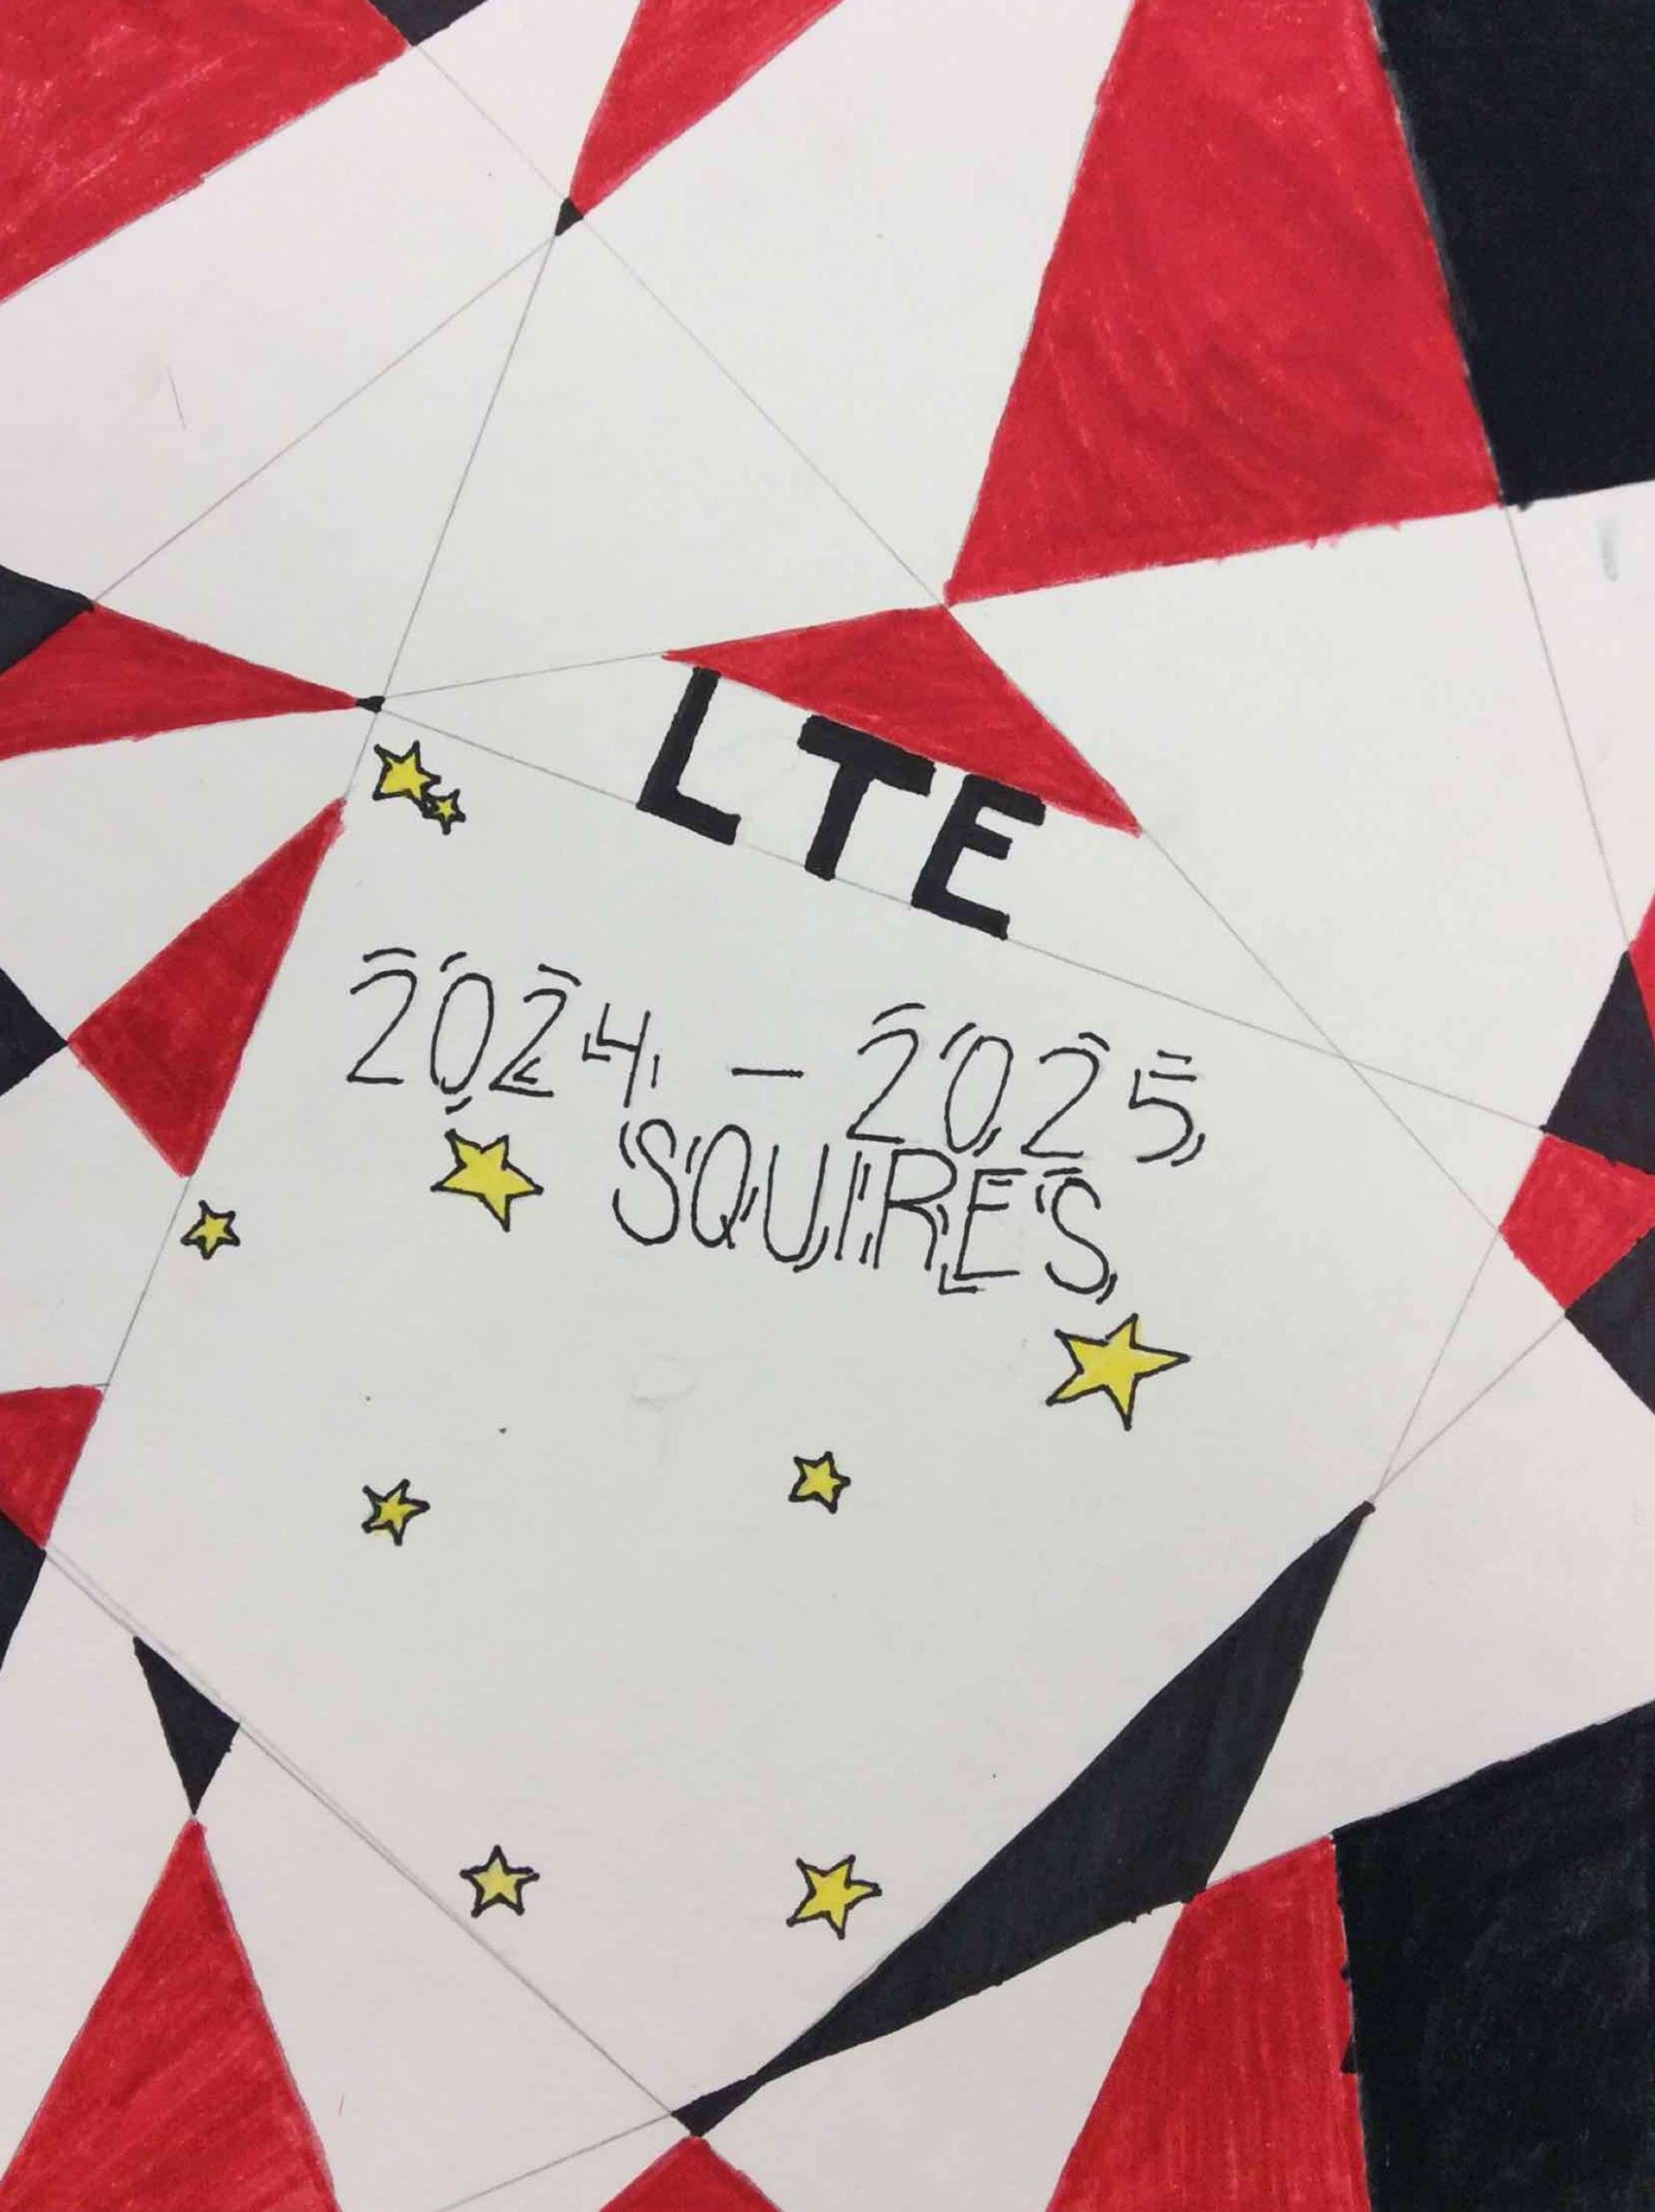 LTE
2024 - 2025
SQUIRES